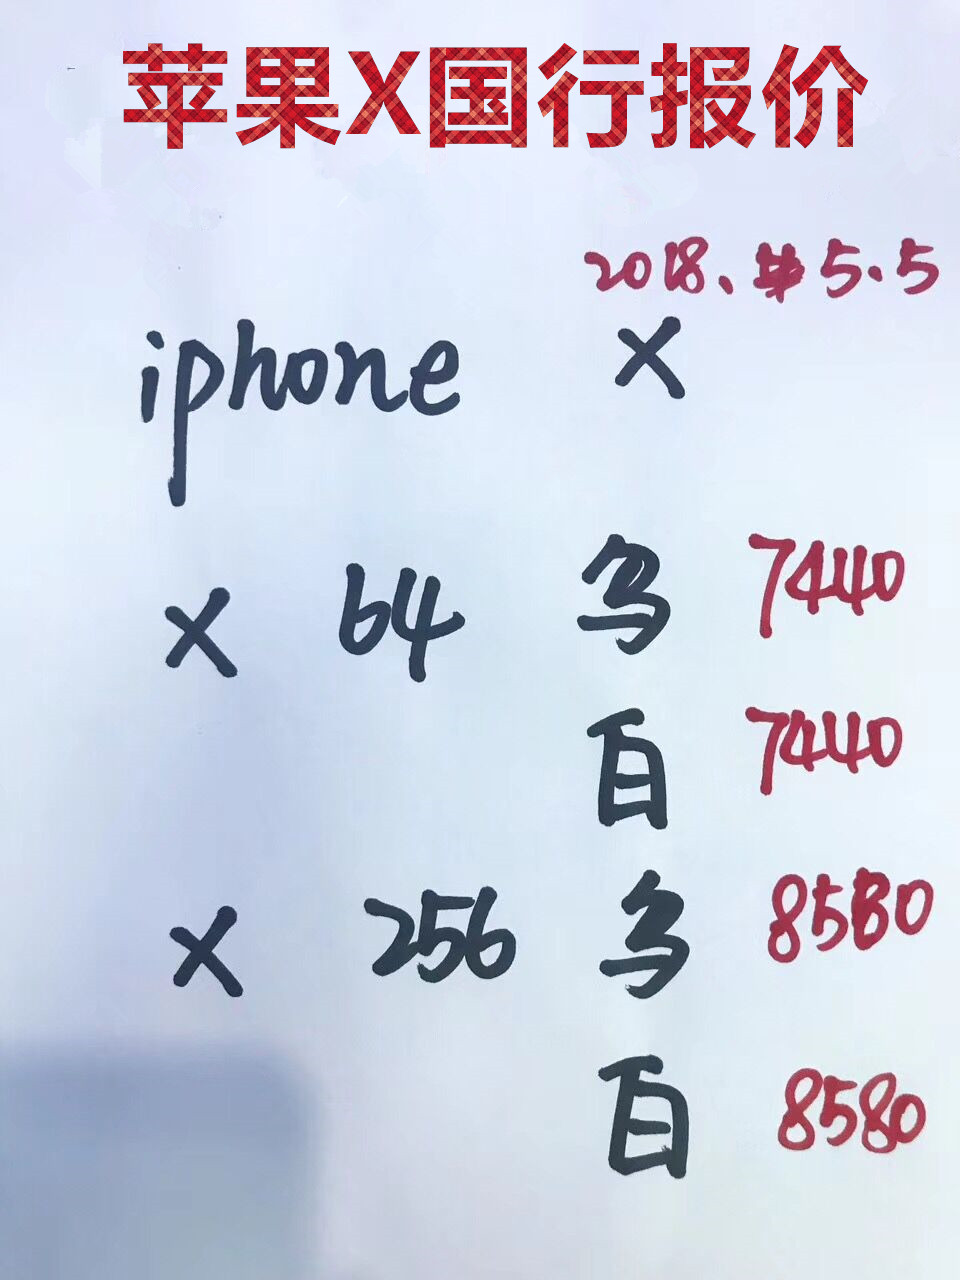 苹果X国行报价
2018.5.5
iphone X
X 64 乌 7440
白 7440
X 256 乌 8580
白 8580